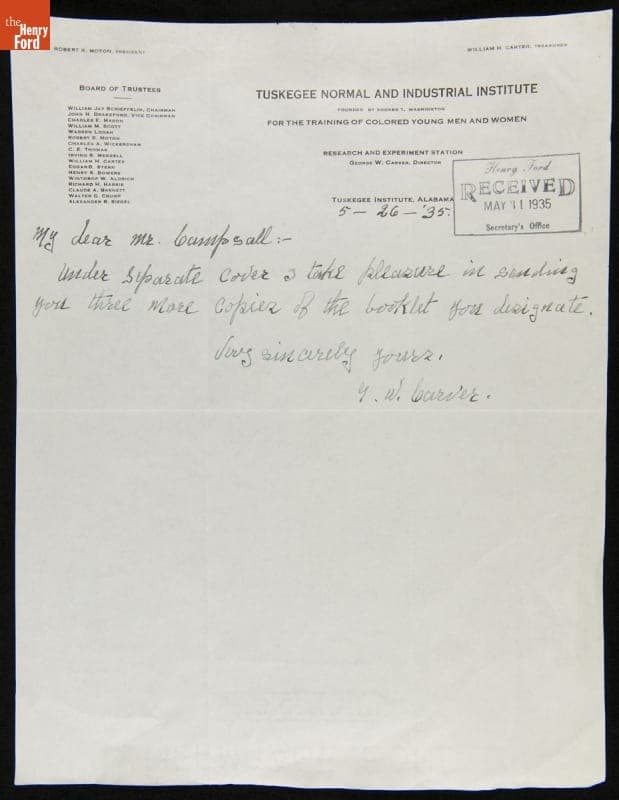 the
Henry
Ford
ROBERT R. MOTON, PRESIDENT
WILLIAM H. CARTER, TREASURER
BOARD OF TRUSTEES
WILLIAM JAY SCHIEFFELIN, CHAIRMAN
JOHN H. DRAKEFORD, VICE CHAIRMAN
CHARLES E. MASON
WILLIAM M. SCOTT
WARREN LOGAN
ROBERT R. MOTON
CHARLES A. WICKERSHAM
C. E. THOMAS
IRVING S. MERRELL
WILLIAM H. CARTER
EDGAR B. STERN
HENRY E. BOWERS
WINTHROP W. ALDRICH
RICHARD H. HARRIS
CLAUDE A. BARNETT
WALTER G. CRUMP
ALEXANDER B. SIEGEL
TUSKEGEE NORMAL AND INDUSTRIAL INSTITUTE
FOUNDED BY BOOKER T. WASHINGTON
FOR THE TRAINING OF COLORED YOUNG MEN AND WOMEN
RESEARCH AND EXPERIMENT STATION
GEORGE W. CARVER, DIRECTOR
TUSKEGEE INSTITUTE, ALABAMA
Henry Ford
RECEIVED
MAY 31 1935
Secretary's Office
5-26-'35.
My dear Mr. Campsall:-
Under separate cover I take pleasure in sending
you three more copies of the booklet you designate.
Very sincerely yours,
G. W. Carver.